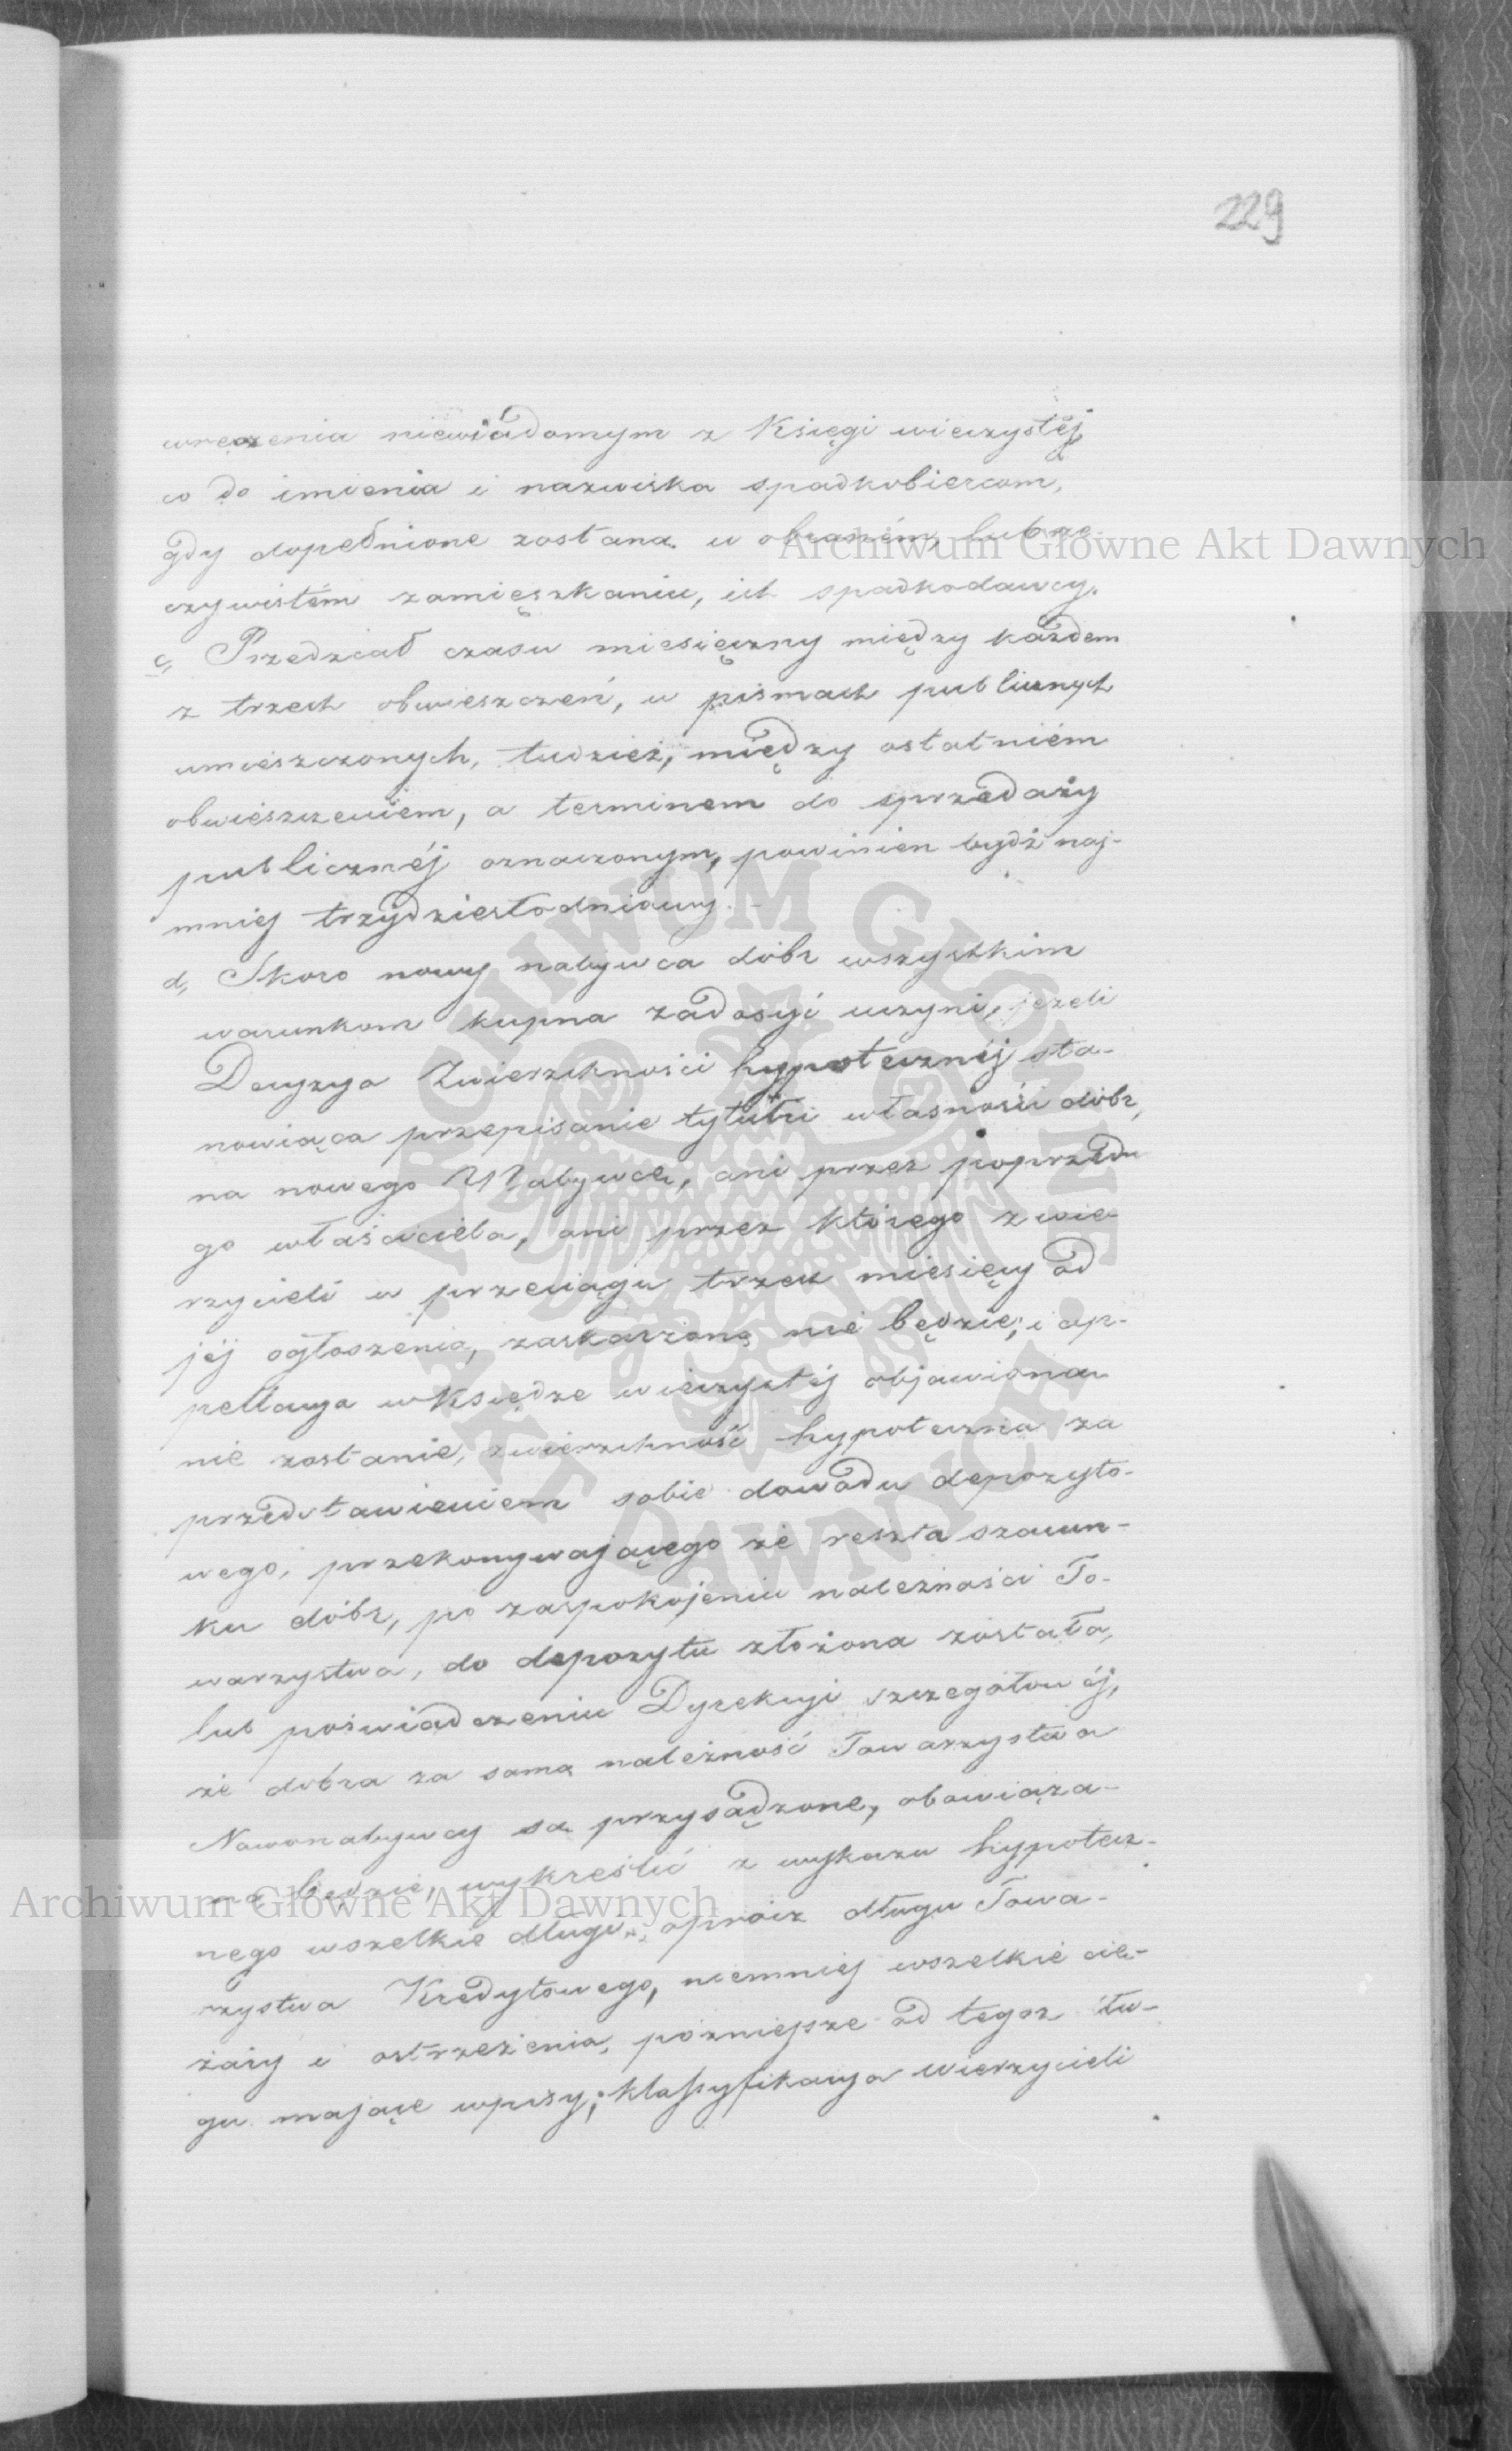 229
wręczenia niewiadomym z Księgi wieczystéj
co do imienia i nazwiska spadkobiercom,
gdy dopełnione zostaną w obraném, lub rze-
czywistém zamięszkaniu, ich spadkodawcy.
c, Przedział czasu miesięczny między każdem
z trzech obwieszczeń, w pismach publicznych
umieszczonych, tudzież, między ostatniém
obwieszczeniem, a terminem do sprzedaży
publicznéj oznaczonym, powinien bydź naj-
mniej trzydziestodniowy.
d, Skoro nowy nabywca dóbr wszystkim
warunkom kupna zadosyć uczyni, jeżeli
Decyzya Zwierzchności hypotecznéj sta-
nowiąca przepisanie tytułu własności dóbr,
na nowego Nabywcę, ani przez poprzednie-
go właściciela, ani przez którego z wie-
rzycieli w przeciągu trzech miesięcy od
jéj ogłoszenia, zaskarżoną nie będzie, i ap-
pellacya w Księdze wieczystéj objawiona
nie zostanie, zwierzchność hypoteczna za
przedstawieniem sobie dowodu depozyto-
wego, przekonywającego że reszta szacun-
ku dóbr, po zaspokojeniu należności To-
warzystwa, do depozytu złożona została,
lub poświadczeniu Dyrekcyi szczegółowéj,
że dobra za samą należność Towarzystwa
Nowonabywcy są przysądzone, obowiąza-
ną będzie, wykreślić z wykazu hypotecz-
nego wszelkie długi, oprócz długu Towa-
rzystwa Kredytowego, niemniej wszelkie cię-
żary i ostrzeżenia, późniejsze od tegoż dłu-
gu mające wpisy; klassyfikacya wierzycieli
Archiwum Główne Akt Dawnych
Archiwum Główne Akt Dawnych
ARCHIWUM GŁÓWNE
AKT DAWNYCH